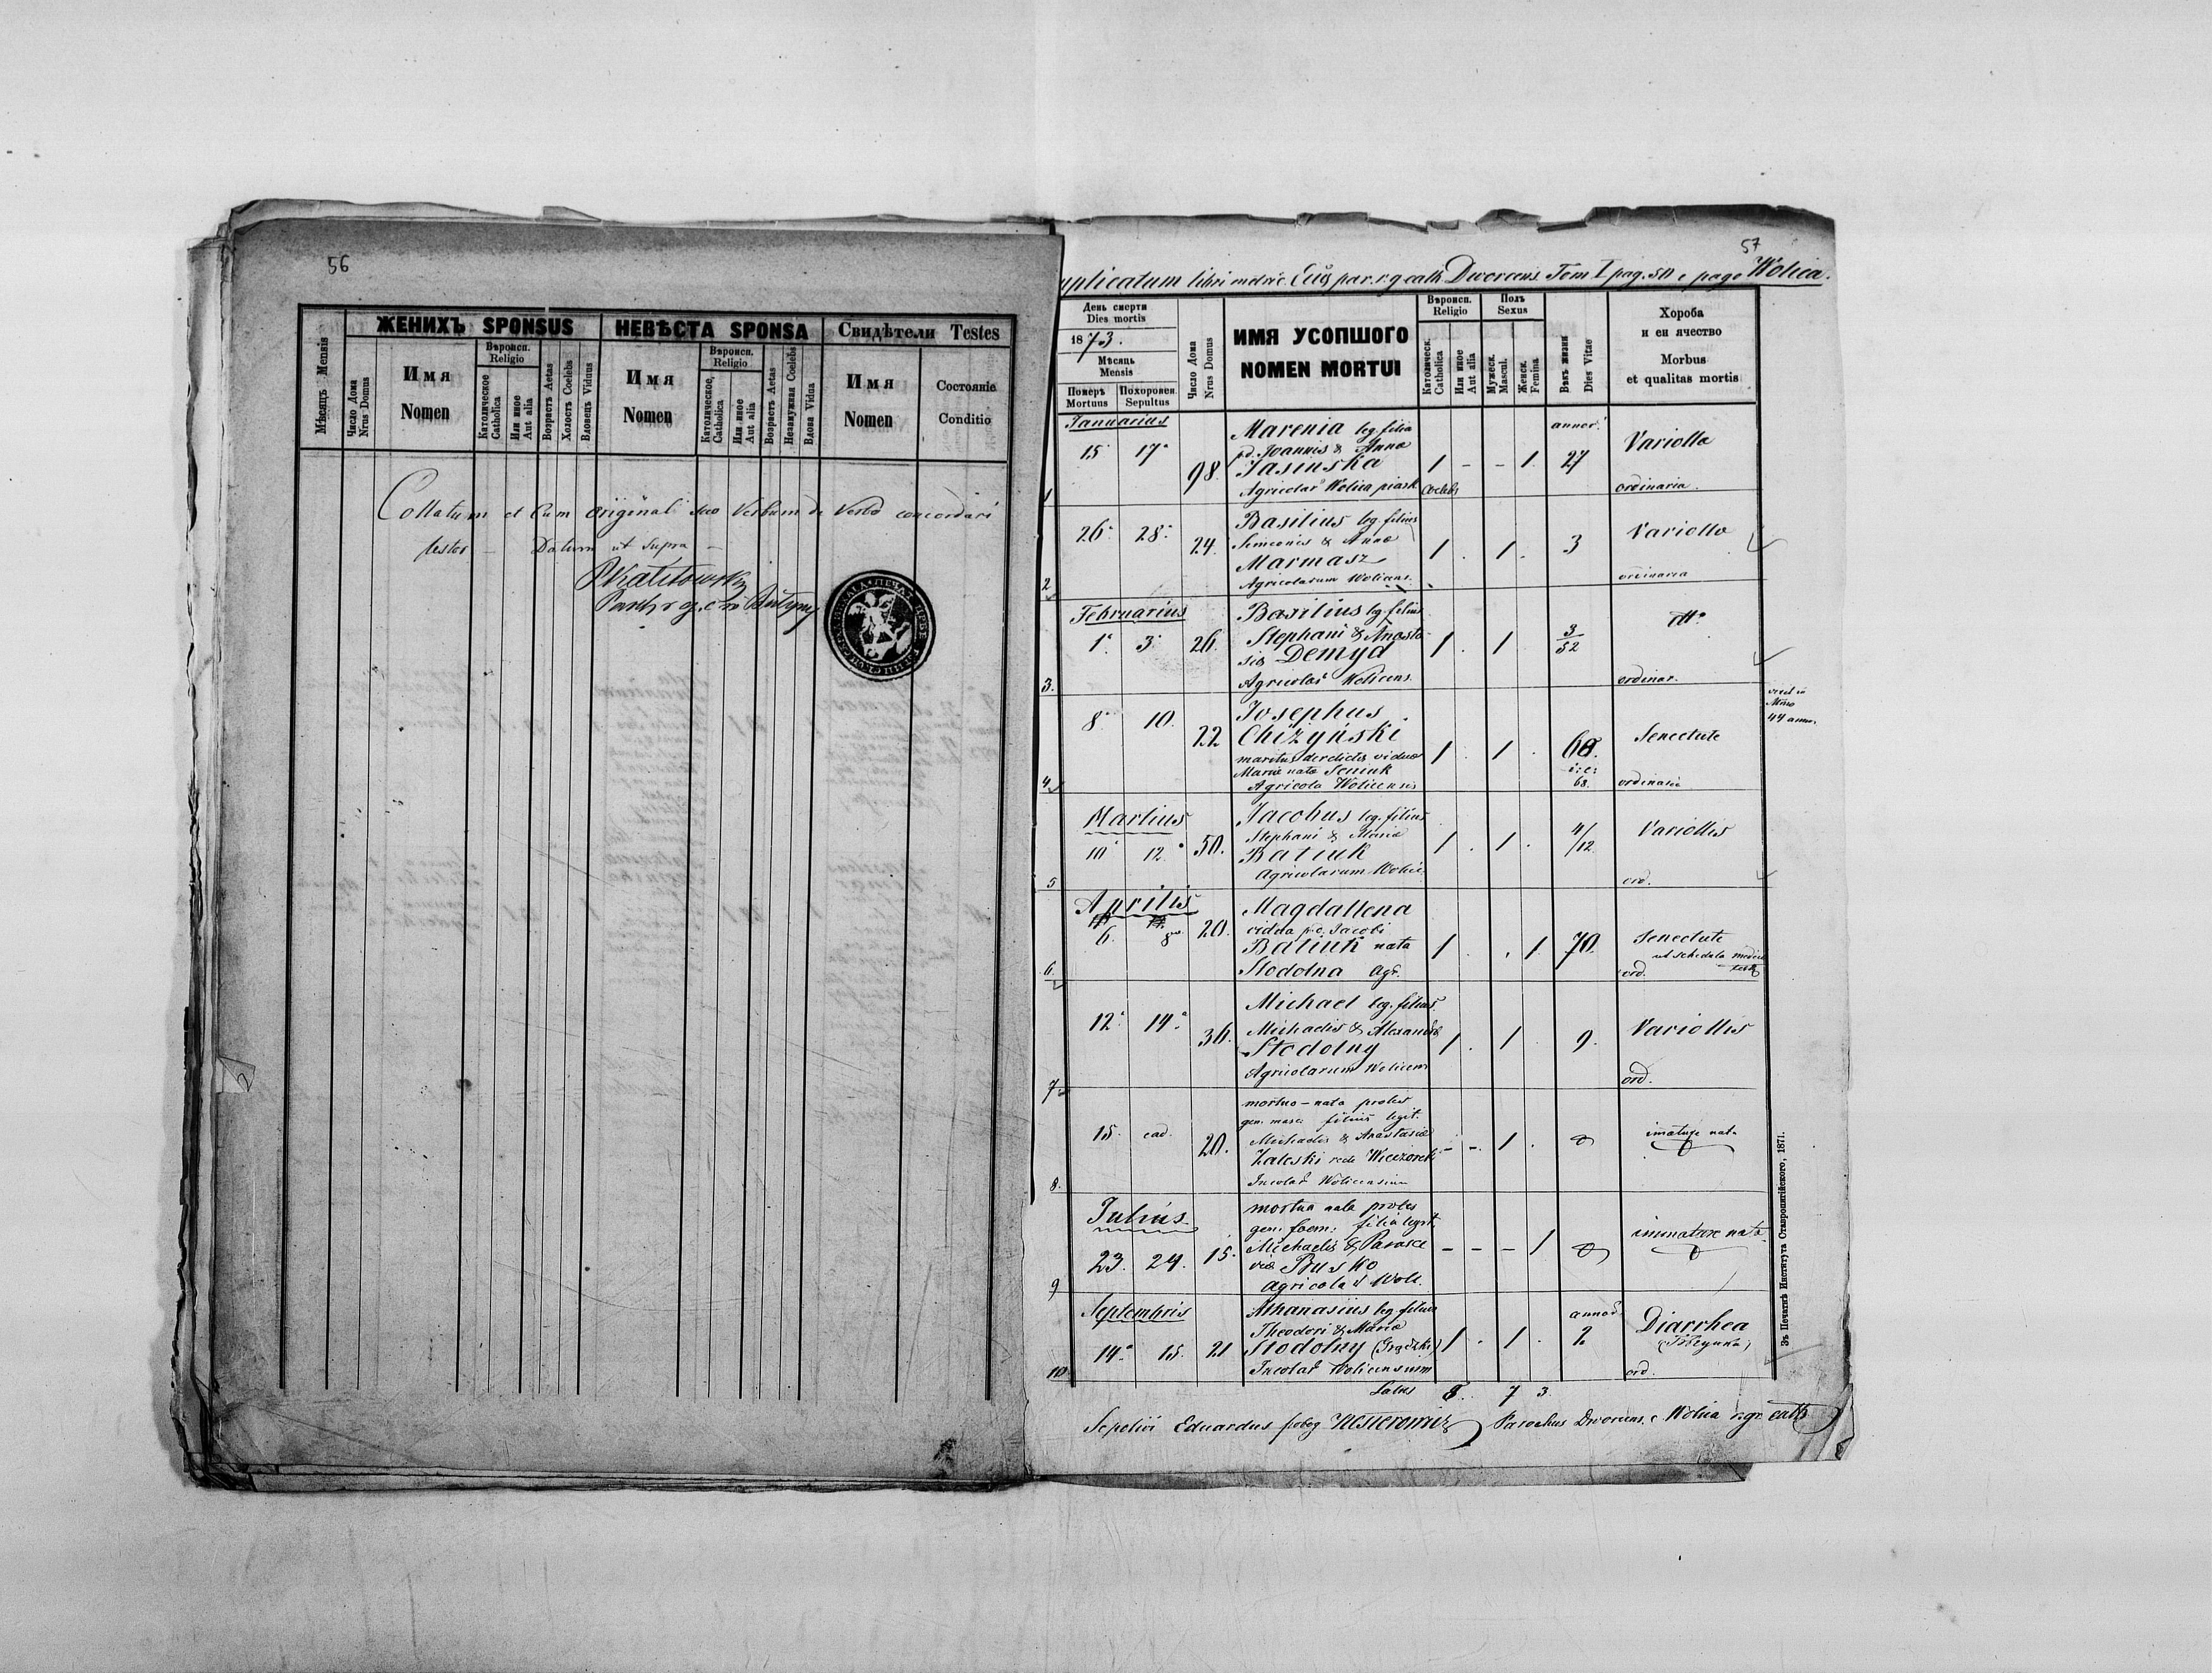 56
ЖЕНИХЪ SPONSUS
НЕВѢСТА SPONSA
Свидѣтели Testes
Мѣсяць Mensis
Число Дома
Nrus Domus
Имя
Nomen
Вѣроисп.
Religio
Католическое
Catholica
Или иное
Aut alia
Возрастъ Aetas
Холостъ Coelebs
Вдовець Viduus
Имя
Nomen
Вѣроисп.
Religio
Католическое,
Catholica
Или иное
Aut alia
Возрастъ Aetas
Незамужная Coelebs
Вдова Vidua
Имя
Nomen
Состояніе
Conditio
Collatum et Cum original suo Verbum de Verbo concordari
testor — Datum ut Supra —
57
uplicatum libri metric. par. r. g. cath. Dworcens. Tom I pag. 50 e pago Wolica.
День смерти
Dies mortis
1873.
Мѣсяць
Mensis
Померъ
Mortuus
Похоронен.
Sepultus
Число Дома
Nrus Domus
ИМЯ УСОПШОГО
NOMEN MORTUI
Вѣроисп.
Religio
Католическ.
Catholica
Или иное
Aut alia
Полъ
Sexus
Мужеск.
Mascul.
Женск.
Femina
Вѣкъ жизни
Dies Vitae
Хороба
и еи ячество
Morbus
et qualitas mortis
Januarius
1 15 17 98 Marenia leg. filia
Joannis & Anna
Jasinska
Agricolar Wolica piask
1 - - 1 annor. 27 Variolla
Coelebs
ordinaria.
2 26 28 24. Basilius leg. filius
Simeonis & Anna
Marmasz
Agricolarum Wolicens.
1 . 1 . 3 Variolla
ordinaria
Februarius
3. 1. 3 26. Basilius leg. filius
Stephani & Anasta
siæ Demyd
Agricolar Wolicens.
1 . 1 3/52 dtto
ordinar.
4 8 10. 22 Josephus
Chiżyński
maritus derelictæ viduæ
Mariæ nata Seniuk
Agricola Wolicensis
1 . 1 . 68. i: e: 68. Senectute
ordinaria
vixit in
Mrio
44 anno.
Martius
5 10 12 50. Jacobus leg. filius
Stephani & Mariæ
Batiuk
Agricolarum Wolic.
1 . 1 . 4/12 Variollis
ord.
Aprilis
6. 6. 8 20. Magdallena
vidua p. c. Jacobi
Batiuk nata
Stodolna Agr.
1 . . 1 70. Senectute
ut schedula
ord.
7 12 14 36. Michael leg. filius
Michaelis & Alexandra
Stodolny
Agricolarum Wolicens
1 . 1 . 9. Variollis
ord.
8. 15. ead. 20. mortuo - nata proles
gen. masc. filius legit.
Michaelis & Anastasiæ
Zaleski rede Wieczorek
Incolar Wolicensium
- - 1 . imature nata
Julius
9 23. 24. 15. mortua nata proles
gen. foem: filia legit.
Michaelis & Parasce
viæ Busko
Agricolar Wolic.
- - - 1 immature nata
Septembris
10. 14. 15. 21 Athanasius leg. filius
Theodori & Mariæ
Stodolny
Incolar Wolicensium
1 . 1 . annor 2 Diarrhea
ord.
Latus 8. 7 3.
Sepelivi Eduardus Parochus Dworcens. e Wolica r. gr. cath
Зъ Печатнѣ Института Ставропигійского, 1871.